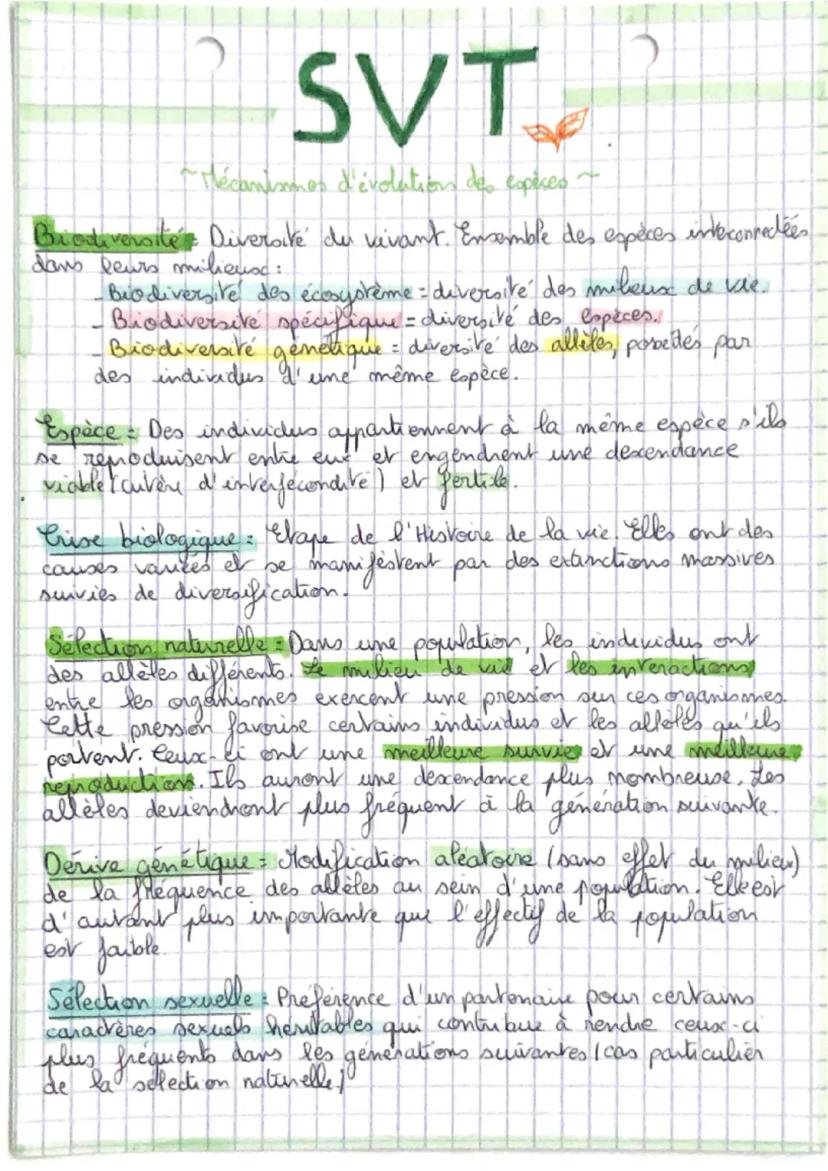 SVT
~Mécanismes d'évolution des espèces~
Biodiversité = Diversité du vivant. Ensemble des espèces interconnectées
dans leurs milieux :
- Biodiversité des écosystème = diversité des milieux de vie.
- Biodiversité spécifique = diversité des espèces.
- Biodiversité génétique = diversité des allèles, possédés par
des individus d'une même espèce.
Espèce = Des individus appartiennent à la même espèce s'ils
se reproduisent entre eux et engendrent une descendance
viable (critère d'interfécondité) et fertile.
Crise biologique = Etape de l'Histoire de la vie. Elles ont des
causes variées et se manifestent par des extinctions massives
suivies de diversification.
Sélection naturelle = Dans une population, les individus ont
des allèles différents. Le milieu de vie et les interactions
entre les organismes exercent une pression sur ces organismes.
Cette pression favorise certains individus et les allèles qu'ils
portent. Ceux-ci ont une meilleure survie et une meilleure
reproduction. Ils auront une descendance plus nombreuse. Les
allèles deviendront plus fréquent à la génération suivante.
Dérive génétique = Modification aléatoire (sans effet du milieu)
de la fréquence des allèles au sein d'une population. Elle est
d'autant plus importante que l'effectif de la population
est faible.
Sélection sexuelle = Préférence d'un partenaire pour certains
caractères sexuels héritables qui contribue à rendre ceux-ci
plus fréquents dans les générations suivantes (cas particulier
de la sélection naturelle)